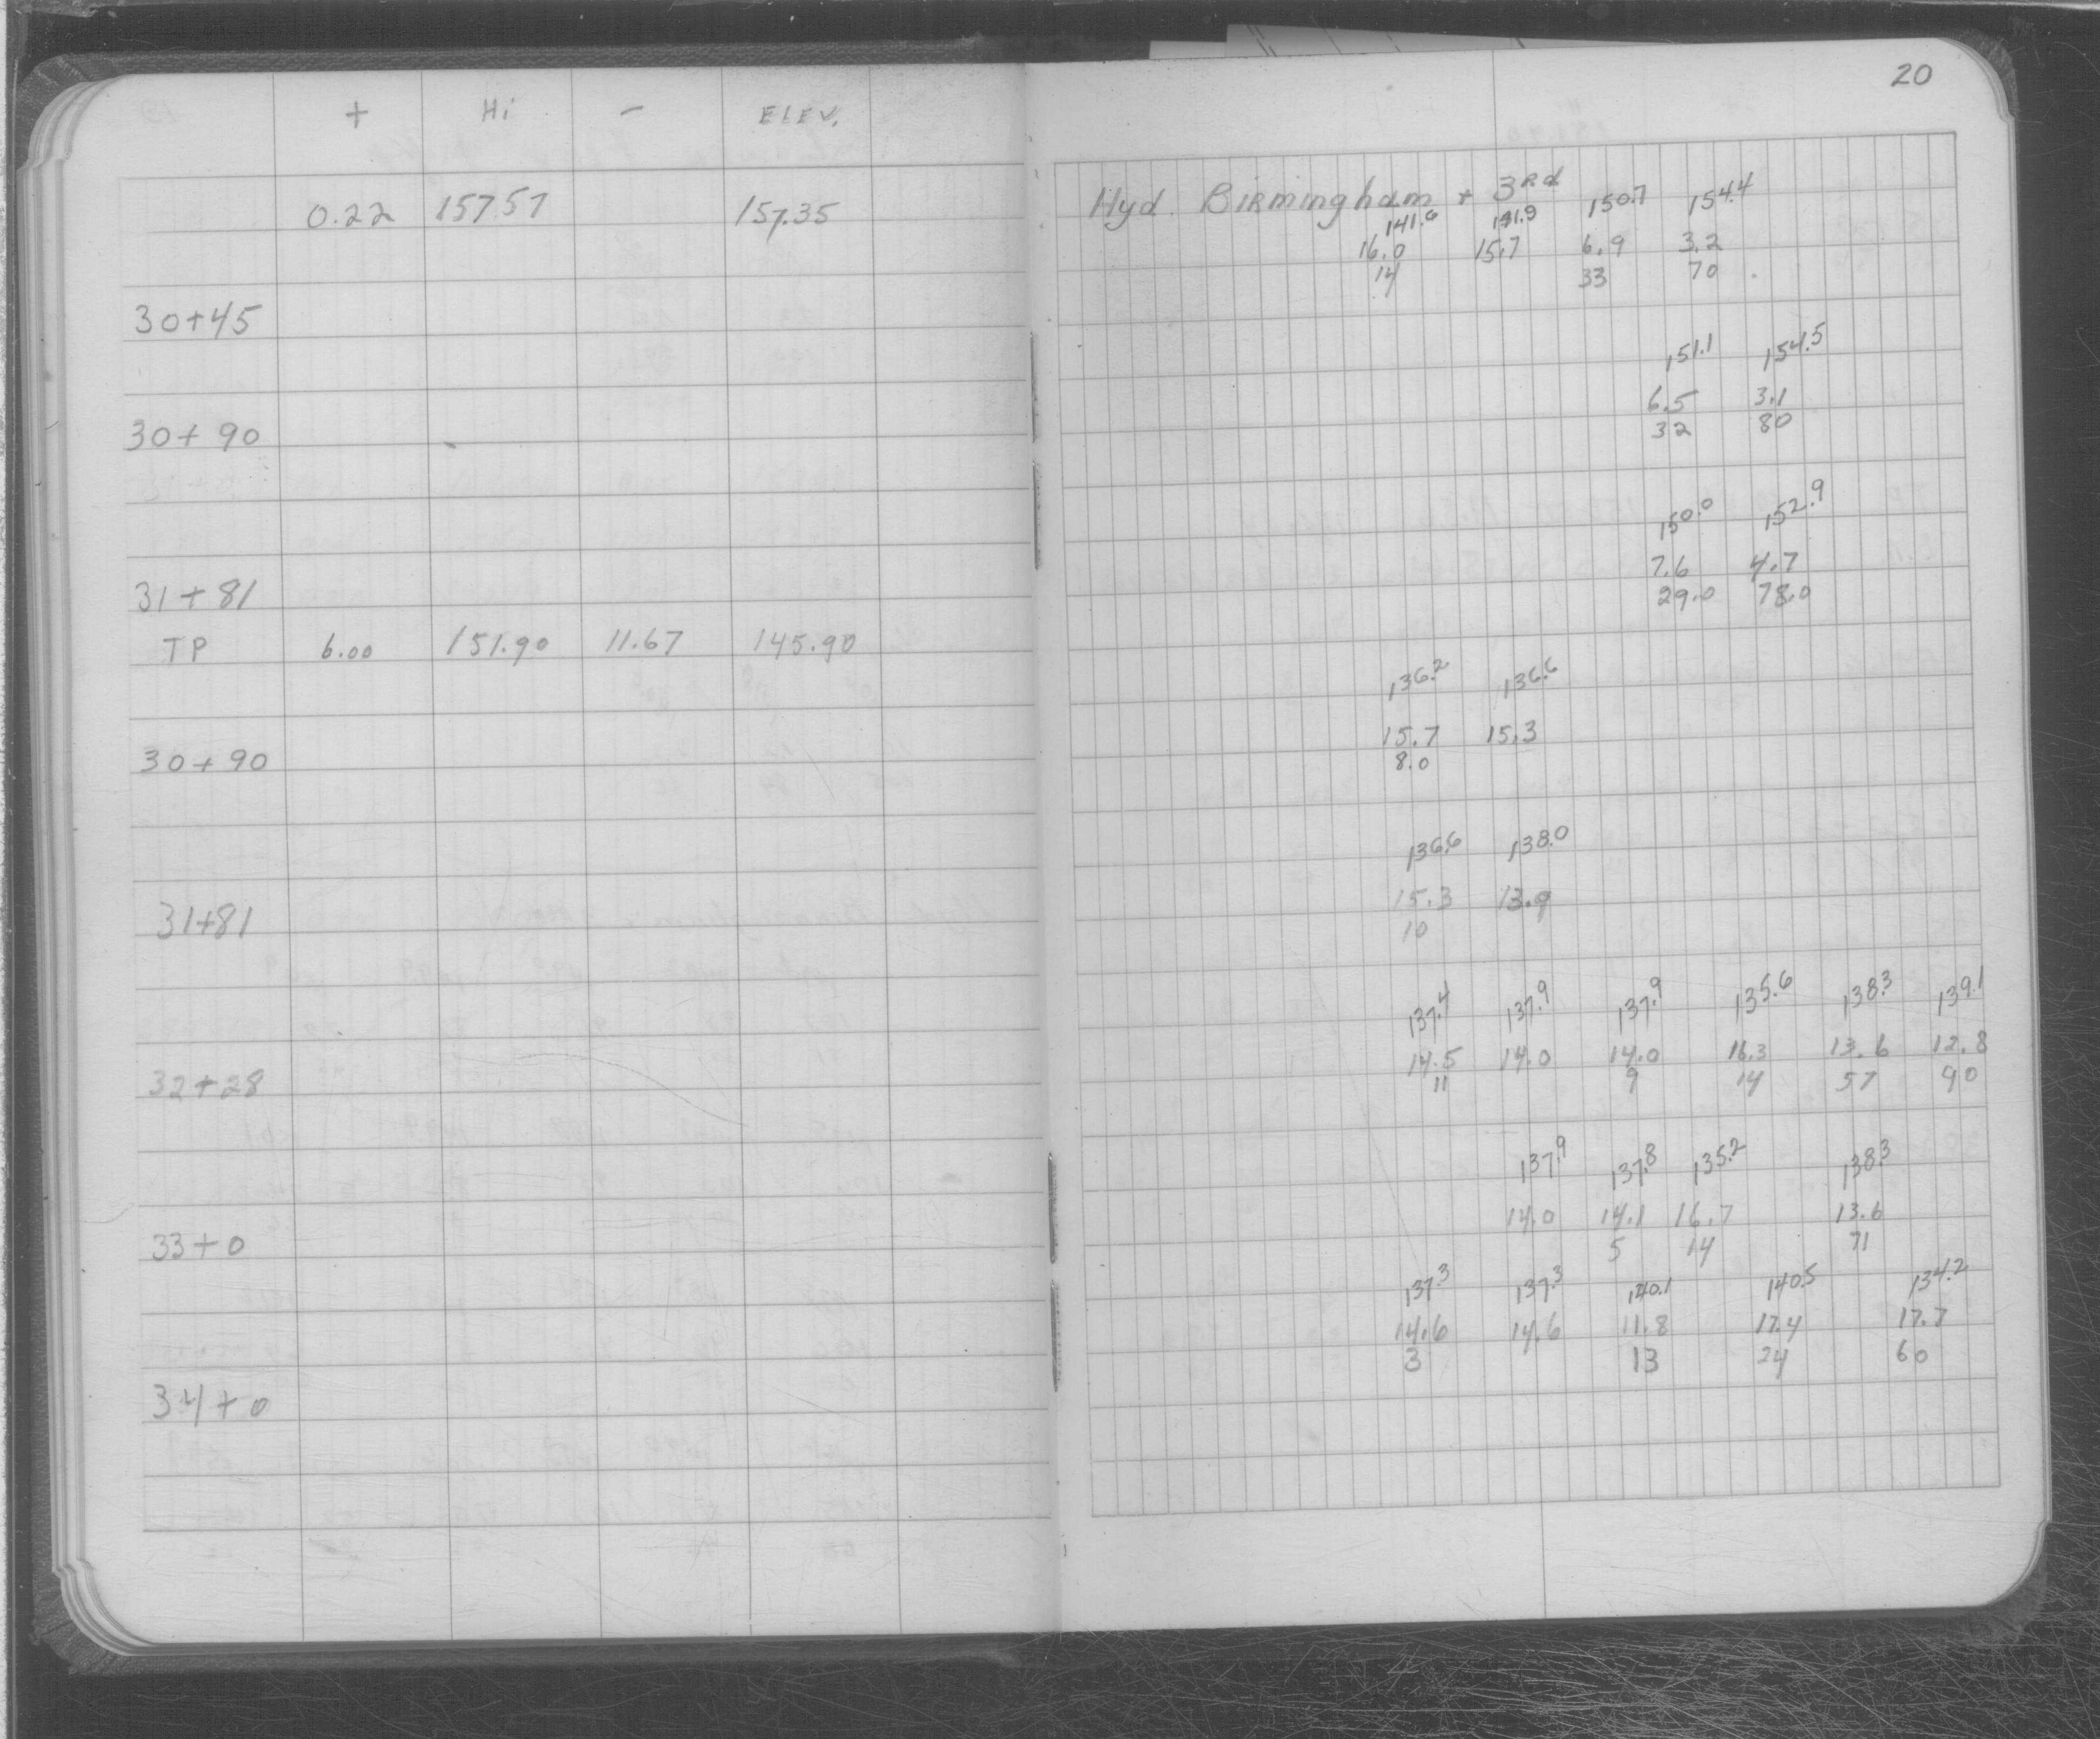 20
+ Hi - ELEV.
0.22 157.57 157.35 Hyd. Birmingham + 3rd
141.6 141.9 150.7 154.4
16.0 15.7 6.9 3.2
14 33 70
30+45
151.1 154.5
6.5 3.1
30+90 32 80
150.0 152.9
7.6 4.7
31+81 29.0 78.0
TP 6.00 151.90 11.67 145.90
136.2 136.6
15.7 15.3
30+90 8.0
136.6 138.0
15.3 13.9
31+81 10
137.4 137.9 137.9 135.6 138.3 139.1
14.5 14.0 14.0 16.3 13.6 12.8
32+28 11 9 14 57 90
137.9 137.8 135.2 138.3
14.0 14.1 16.7 13.6
33+0 5 14 71
137.3 137.3 140.1 140.5 134.2
14.6 14.6 11.8 17.4 17.7
3 13 24 60
34+0